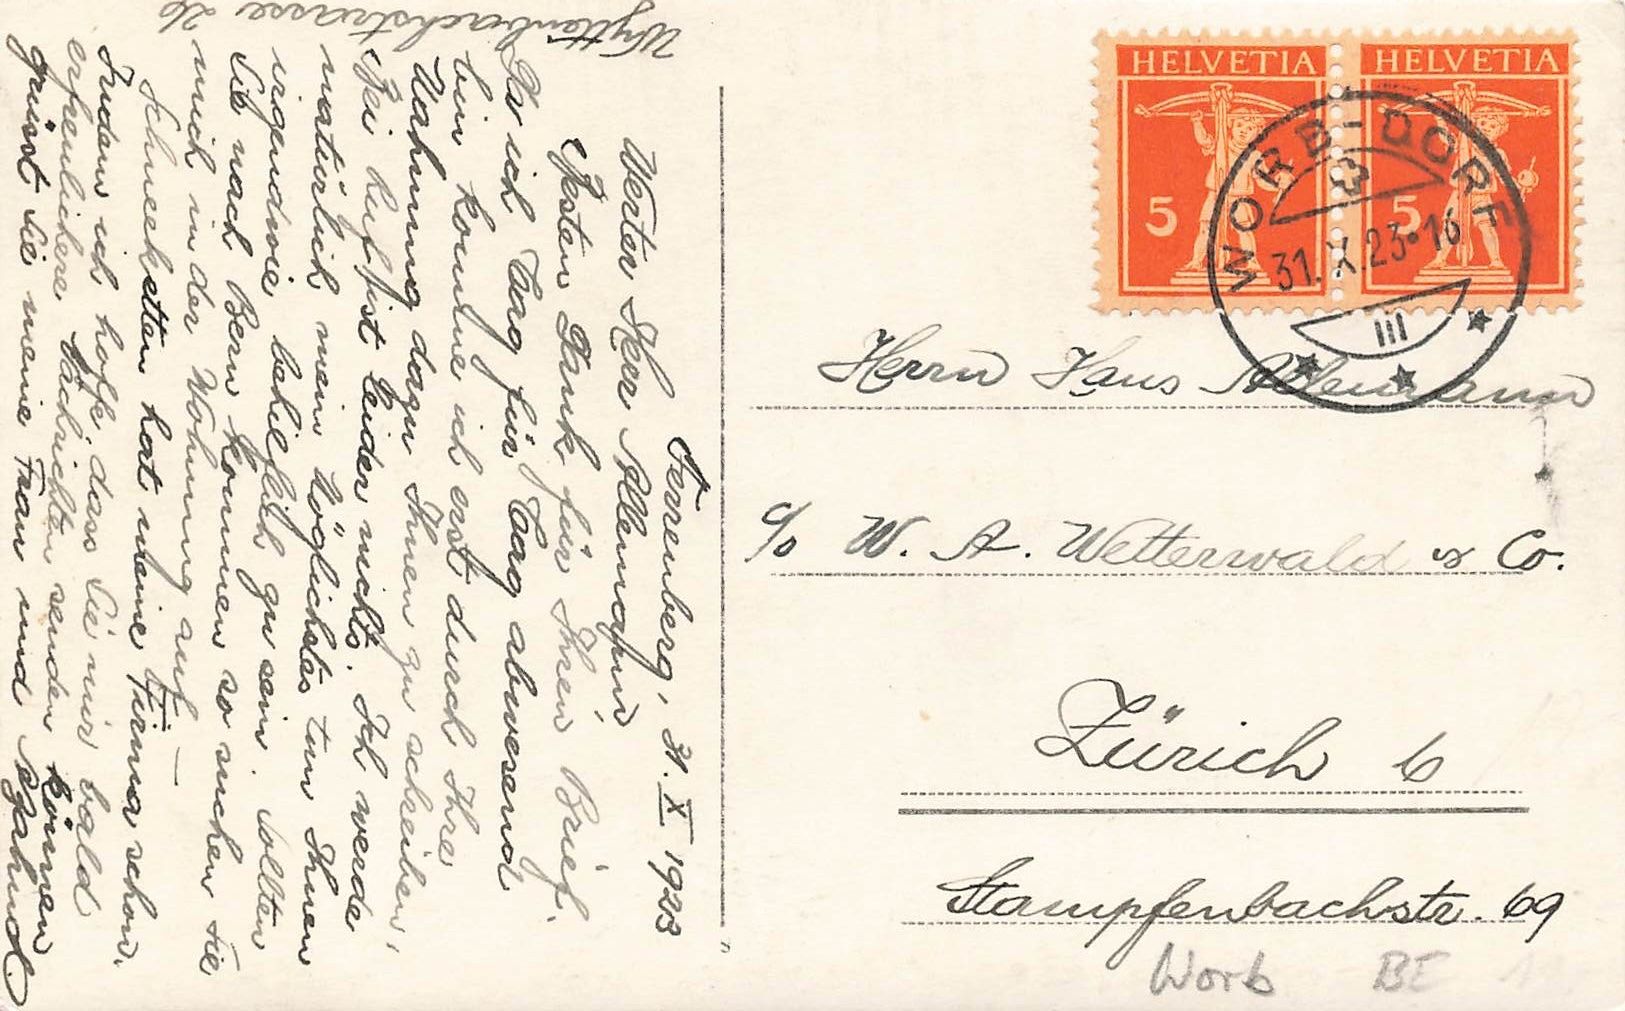 HELVETIA
HELVETIA
5
5
WORB-DORF
31.X.23·16
III
Herrn Hans Allemann
c/o W. A. Wetterwald & Co.
Zürich 6
Stampfenbachstr. 69
Worb BE
Ferrenberg, 31. X 1923
Werter Herr Allemann
Besten Dank für Ihren Brief.
Da ich Tag für Tag abwesend
bin komme ich erst durch Ihre
Mahnung dazu Ihnen zu schreiben,
Bei leider nichts. Ich werde
natürlich mein Möglichstes tun Ihnen
irgendwie behilflich zu sein. Sollten
Sie nach Bern kommen so suchen sie
mich in der Wohnung auf. —
Schneeketten hat meine Firma schon.
Indem ich hoffe dass Sie mir bald
erfreulichere Nachrichten senden können
grüsst Sie meine Frau und
Wyttenbachstrasse 26